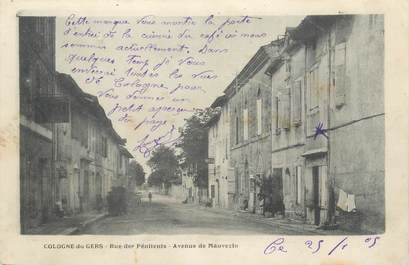 Cette marque vous montre la porte
d'entrée de la cuisine du café où nous
sommes actuellement. Dans
quelques temps je vous
enverrai toutes les vues
de Cologne pour
vous donner un
petit aperçu
du pays
COLOGNE du GERS - Rue des Pénitents - Avenue de Mauvezin
Ce 25/1 05